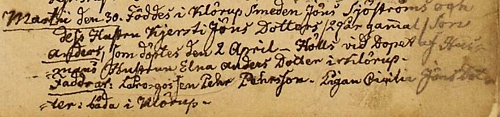 Martii den 30. föddes i Klörup Smeden Jöns Sjöströms och
dess Hustru Kjersti Jöns Dotters 29 år gamal son
Anders, som döptes den 2 April - Hölls vid Dopet af Hus
Hustrun Elna Anders Dotter i Klörup -
Faddrar: en Pehr Pehrsson - Pigan Jöns Dot
ter: båda i Klörup -